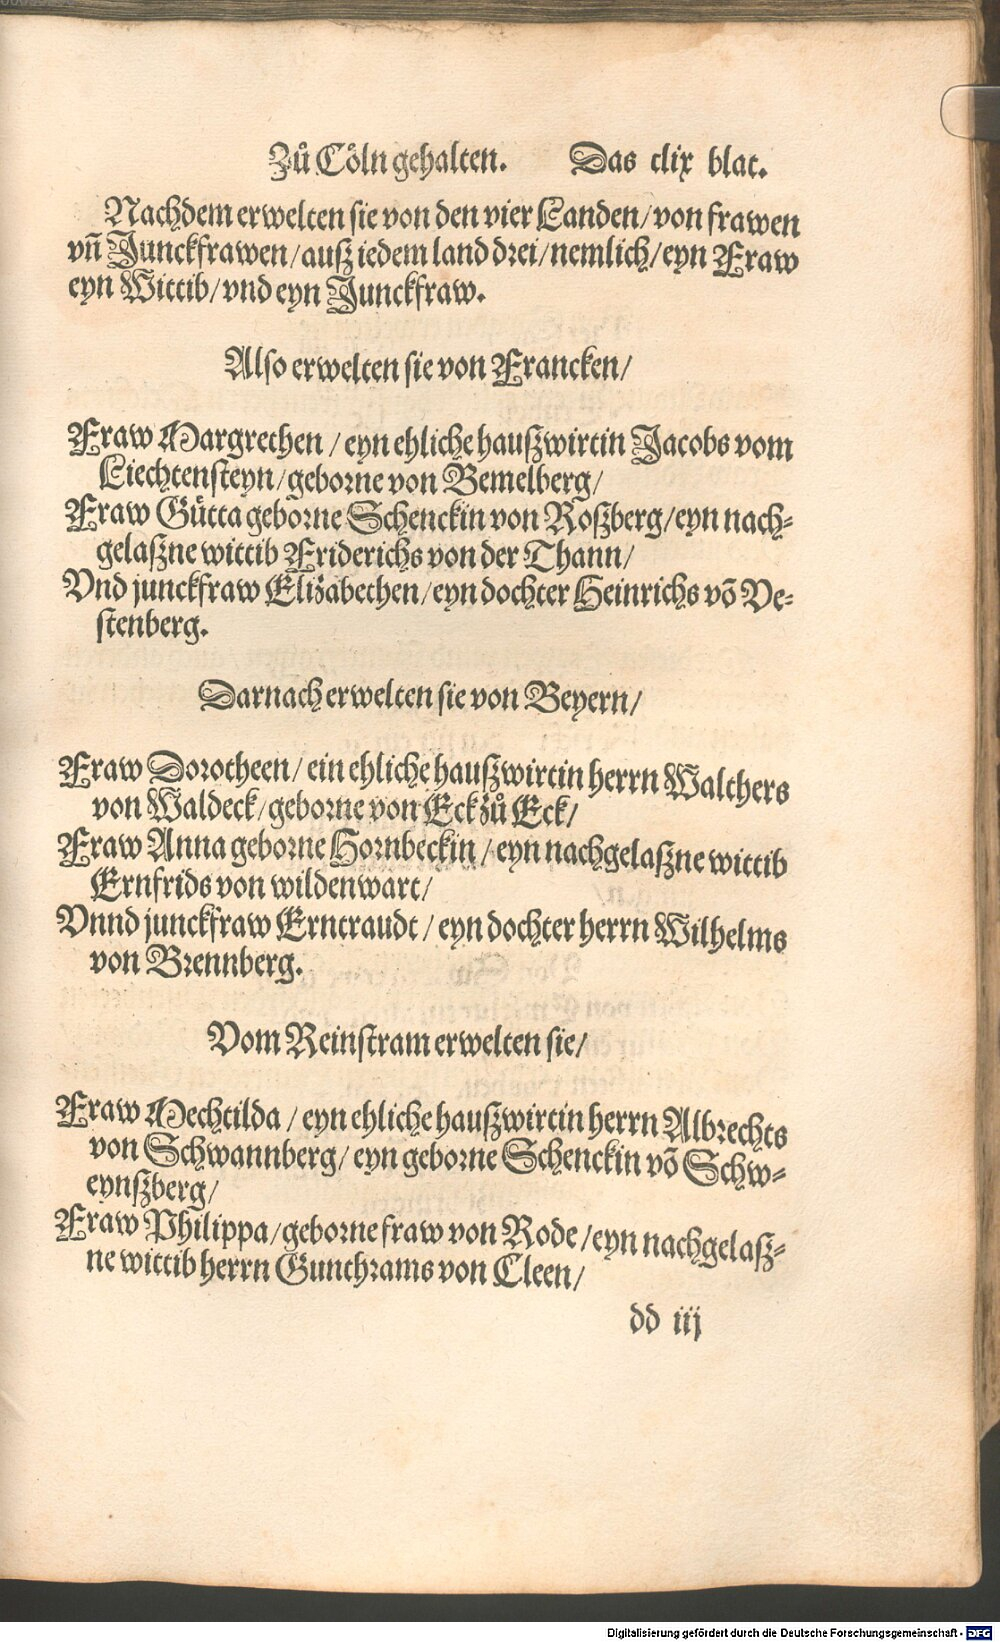 Zů Cöln gehalten. Das clix blat.
Nachdem erwelten sie von den vier Landen/ von frawen
vñ Junckfrawen/ auß iedem land drei/ nemlich/ eyn Fraw
eyn Wittib/ vnd eyn Junckfraw.
Also erwelten sie von Francken/
Fraw Margrethen/ eyn ehliche haußwirtin Jacobs vom
Liechtensteyn/ geborne von Bemelberg/
Fraw Gütta geborne Schenckin von Roßberg/ eyn nach=
gelaßne wittib Friderichs von der Thann/
Vnd junckfraw Elizabethen/ eyn dochter Heinrichs võ Ve=
stenberg.
Darnach erwelten sie von Beyern/
Fraw Dorotheen/ ein ehliche haußwirtin herrn Walthers
von Waldeck/ geborne von Eck zů Eck/
Fraw Anna geborne Hornbeckin/ eyn nachgelaßne wittib
Ernfrids von wildenwart/
Vnnd junckfraw Erntraudt/ eyn dochter herrn Wilhelms
von Brennberg.
Vom Reinstram erwelten sie/
Fraw Mechtilda/ eyn ehliche haußwirtin herrn Albrechts
von Schwannberg/ eyn geborne Schenckin võ Schw=
eynßberg/
Fraw Philippa/ geborne fraw von Rode/ eyn nachgelaß=
ne wittib herrn Gunthrams von Cleen/
dd iij
Digitalisierung gefördert durch die Deutsche Forschungsgemeinschaft - DFG